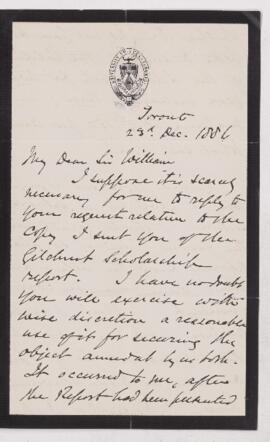 Toronto
23rd Dec. 1886
My Dear Sir William
I suppose it is scarcely
necessary for me to reply to
your request relative to the
Copy I sent you of the
Gilchrist Scholarship
report. I have no doubt
you will exercise with
wise discretion a reasonable
use of it for securing the
object aimed at by us both.
It occurred to me, after
the Report had been presented